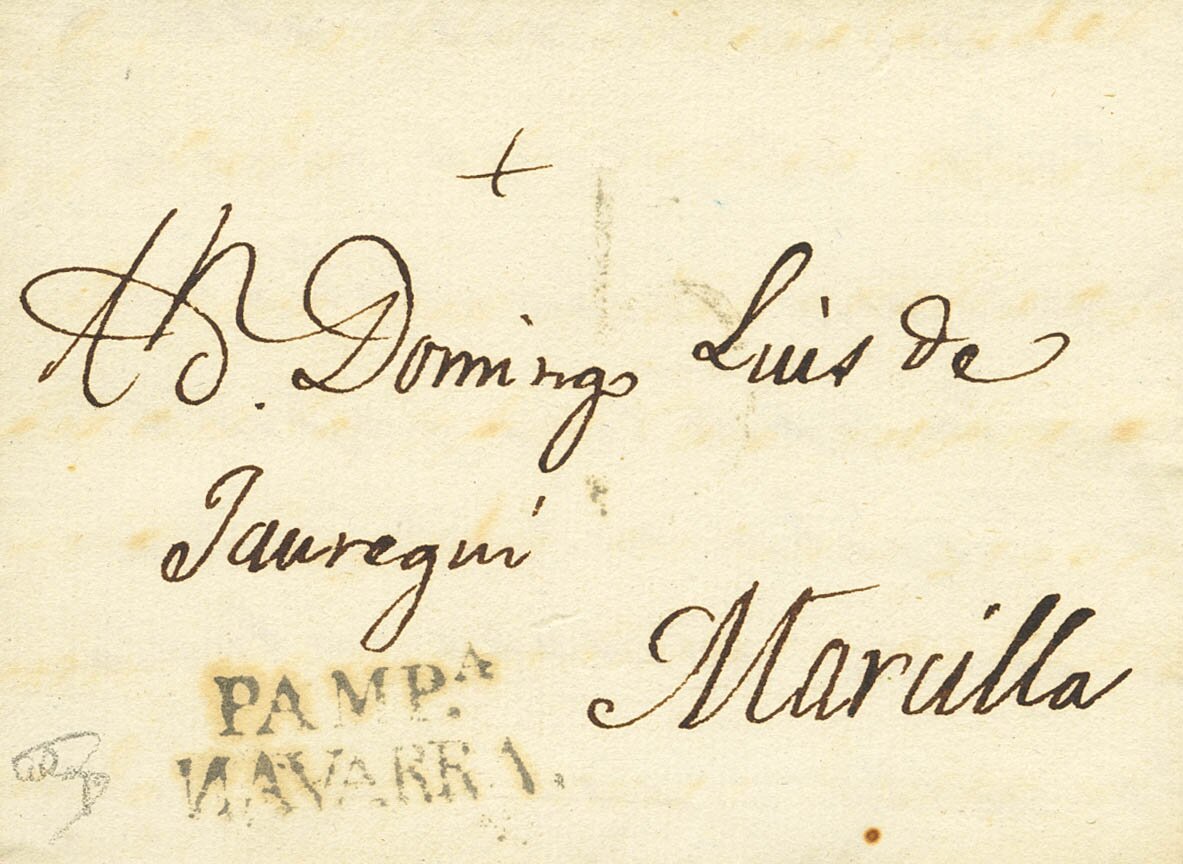 +
A D. Domingo Luis de
Jauregui
Marcilla
PAMP.A
NAVARRA.